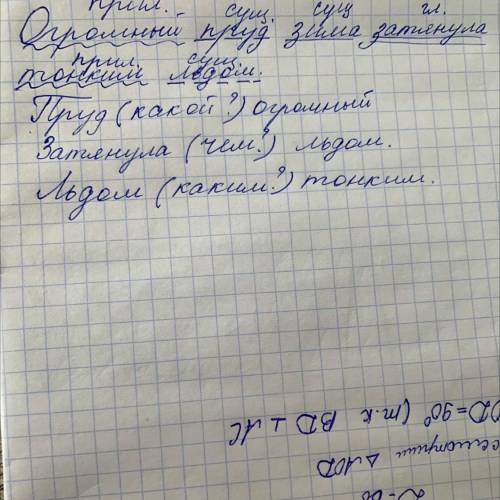 прил. сущ. сущ гл.
Огромный пруд зима затянула
прил. сущ.
тонкий льдом.
Пруд (какой?) огромный
Затянула (чем?) льдом.
Льдом (каким?) тонким.
D=90° (т.к BD ⊥ AC